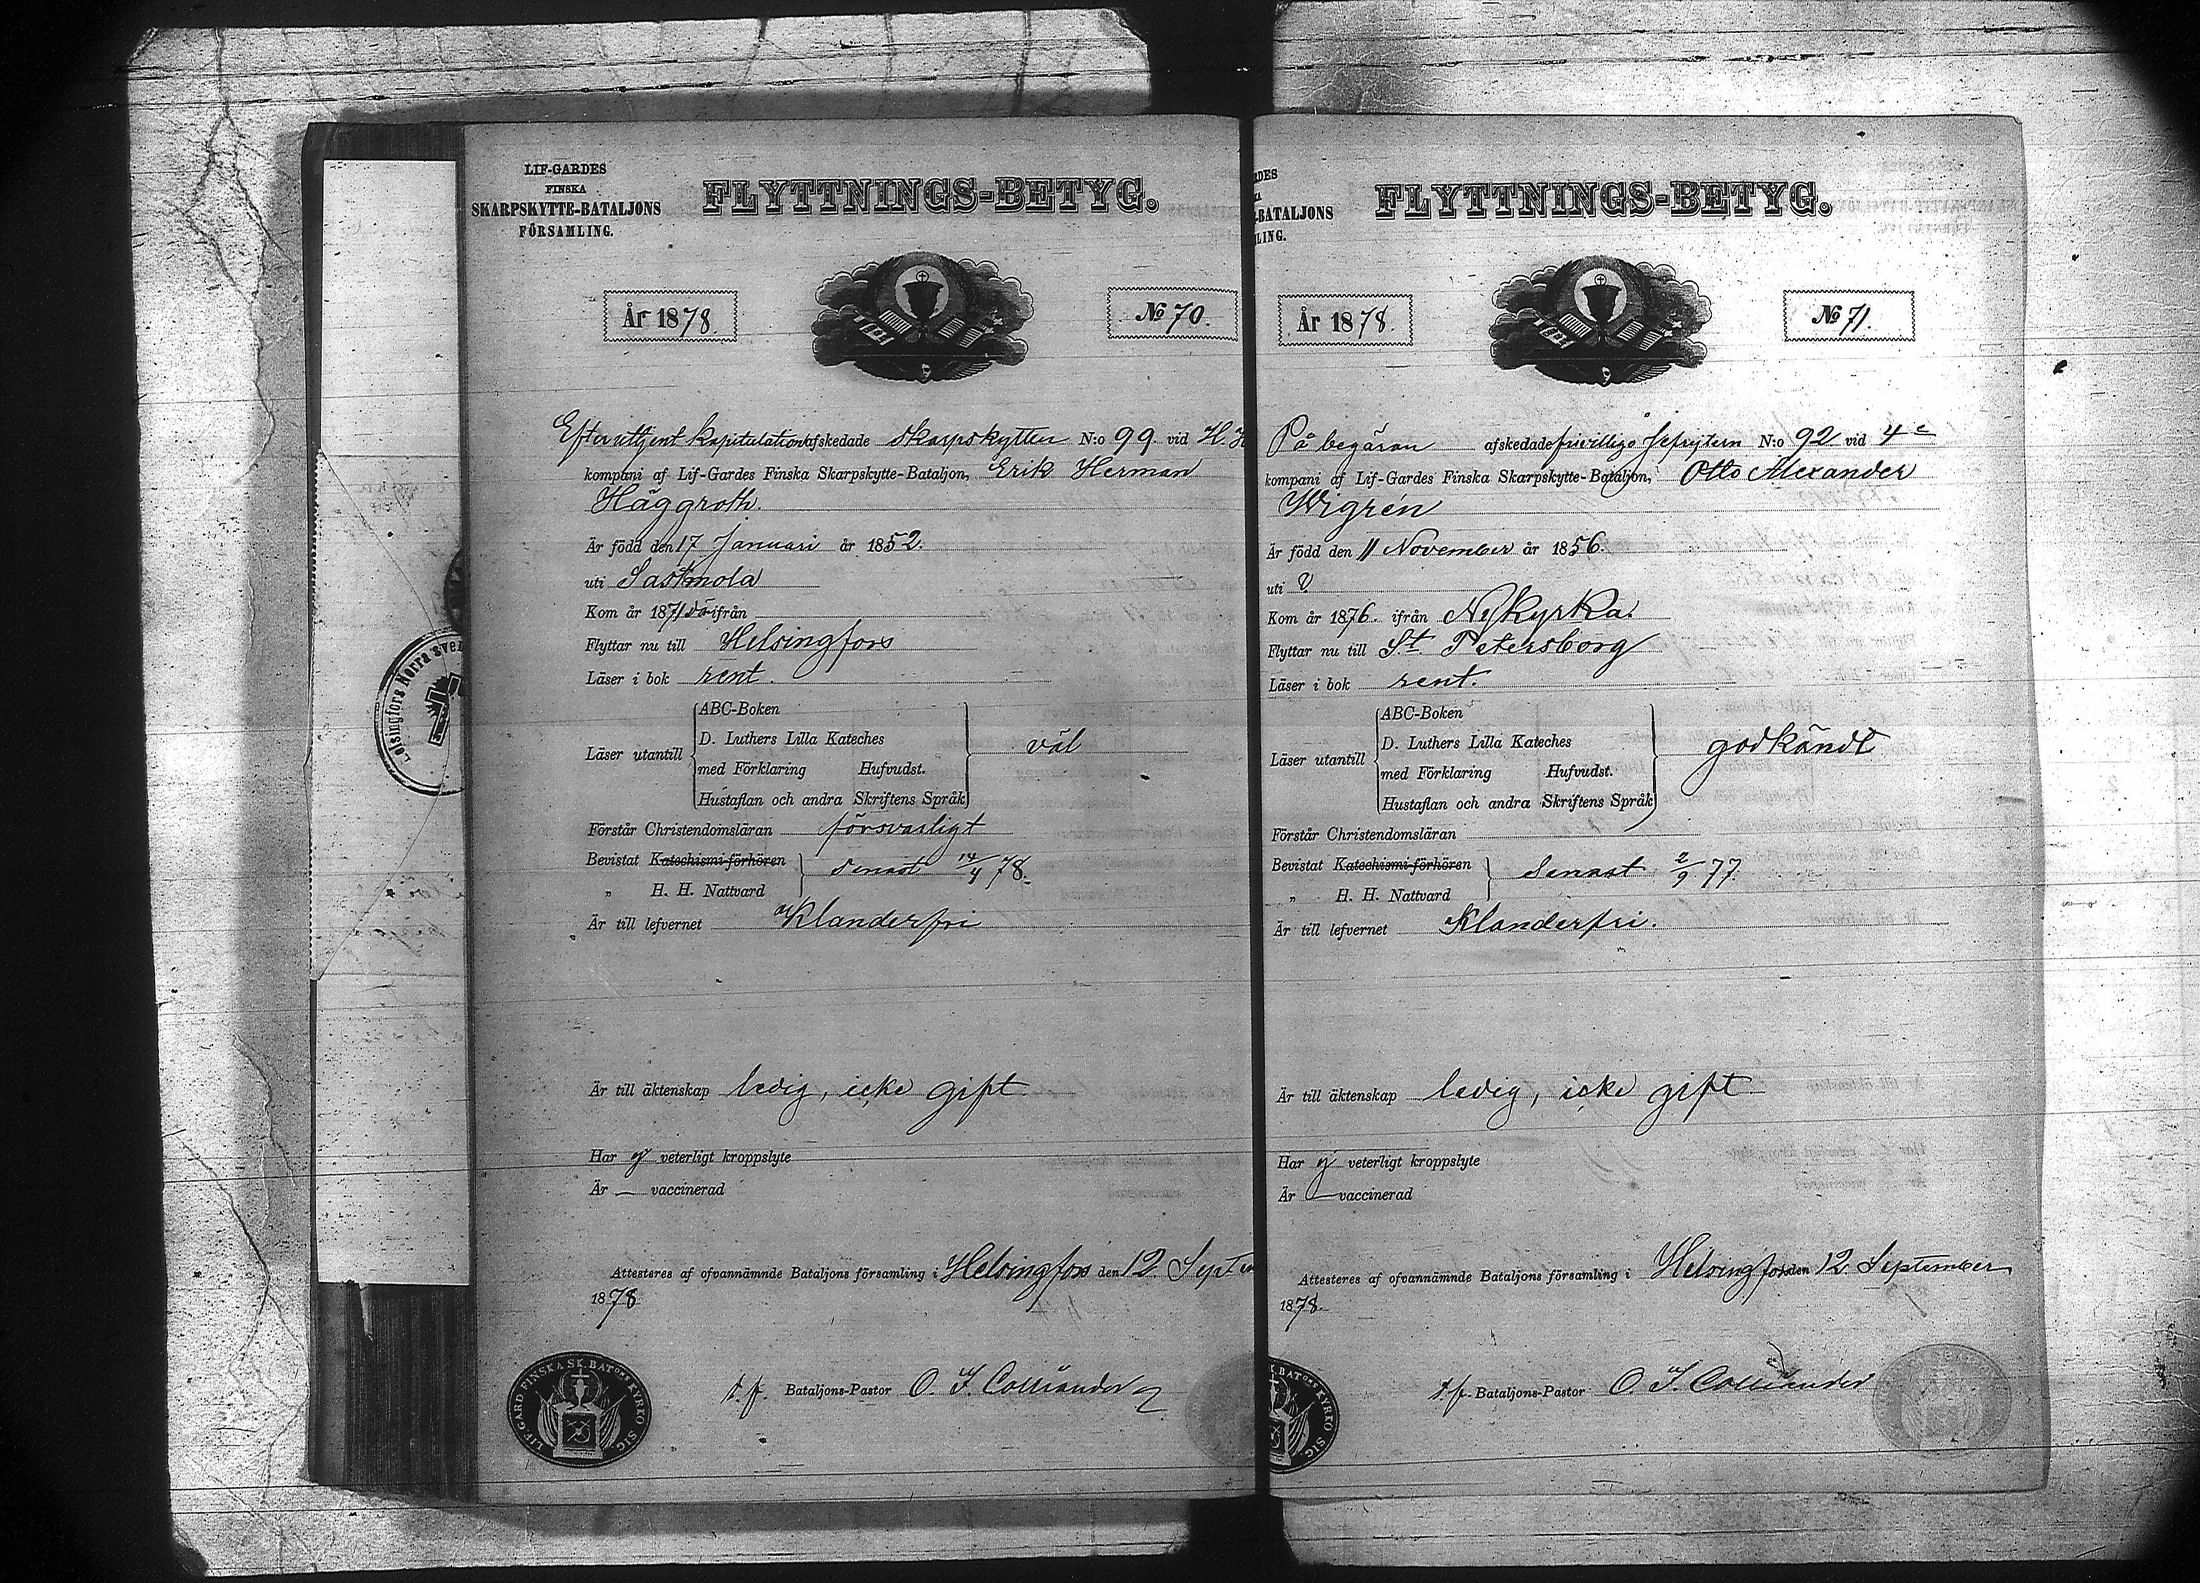 LIF-GARDES
FINSKA
SKARPSKYTTE-BATALJONS
FÖRSAMLING.
FLYTTNINGS-BETYG.
År 1878.
No 70.
Efter uttjent kapitulation afskedade skarpskytten N:o 99 vid H. H
kompani af Lif-Gardes Finska Skarpskytte-Bataljon, Erik Herman
Häggroth.
Är född den 17 Januari år 1852.
uti Sastmola
Kom år 1871 därifrån
Flyttar nu till Helsingfors
Läser i bok rent.
ABC-Boken
D. Luthers Lilla Kateches
Läser utantill med Förklaring Hufvudst. väl
Hustaflan och andra Skriftens Språk
Förstår Christendomsläran försvarligt
Bevistat Katechismi-förhören
senast 14/4 78.
„ H. H. Nattvard
Är till lefvernet oklanderfri
Är till äktenskap ledig, icke gift
Har ej veterligt kroppslyte
Är — vaccinerad
Attesteres af ofvannämnde Bataljons församling i Helsingfors den 12 Septem
1878
t. f. Bataljons-Pastor O. F. Colliander
LIF-GARD. FINSKA SK. BATONS KYRKO SIG.
Helsingfors Norra Sve
RDES
-BATALJONS
LING.
FLYTTNINGS-BETYG.
År 1878.
No 71.
På begäran afskedade frivillige Jefrejtern N:o 92 vid 4e
kompani af Lif-Gardes Finska Skarpskytte-Bataljon, Otto Alexander
Wigrén
Är född den 11 November år 1856.
uti ?
Kom år 1876. ifrån Nykyrka.
Flyttar nu till St Petersborg
Läser i bok rent.
ABC-Boken
D. Luthers Lilla Kateches
Läser utantill med Förklaring Hufvudst. godkändt
Hustaflan och andra Skriftens Språk
Förstår Christendomsläran
Bevistat Katechismi-förhören
Senast 2/9 77.
„ H. H. Nattvard
Är till lefvernet Klanderfri.
Är till äktenskap ledig, icke gift
Har ej veterligt kroppslyte
Är — vaccinerad
Attesteres af ofvannämnde Bataljons församling i Helsingfors den 12 September
1878.
t. f. Bataljons-Pastor O. F. Colliander
K. BATONS KYRKO SIG.